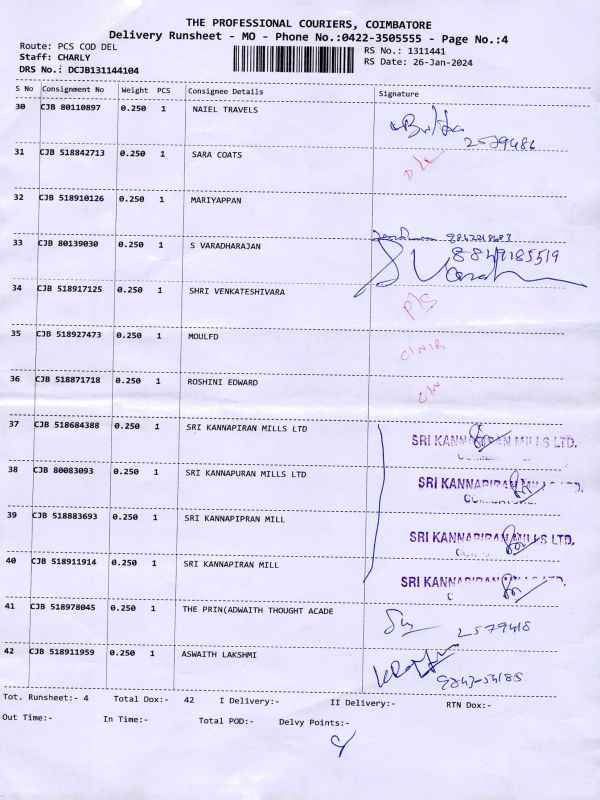 THE PROFESSIONAL COURIERS, COIMBATORE
Delivery Runsheet - MO - Phone No.:0422-3505555 - Page No.:4
Route: PCS COD DEL
RS No.: 1311441
Staff: CHARLY
RS Date: 26-Jan-2024
DRS No.: DCJB131144104
S No Consignment No Weight PCS Consignee Details Signature
30 CJB 80110897 0.250 1 NAIEL TRAVELS
2579486
31 CJB 518842713 0.250 1 SARA COATS
D/L
32 CJB 518910126 0.250 1 MARIYAPPAN
33 CJB 80139030 0.250 1 S VARADHARAJAN
8849185519
34 CJB 518917125 0.250 1 SHRI VENKATESHIVARA
P/S
35 CJB 518927473 0.250 1 MOULFD
C/NIR
36 CJB 518871718 0.250 1 ROSHINI EDWARD
C/N
37 CJB 518684388 0.250 1 SRI KANNAPIRAN MILLS LTD
SRI KANNAPIRAN MILLS LTD.
38 CJB 80083093 0.250 1 SRI KANNAPURAN MILLS LTD
SRI KANNAPIRAN MILLS LTD.
COIMBATORE.
39 CJB 518883693 0.250 1 SRI KANNAPIPRAN MILL
SRI KANNAPIRAN MILLS LTD.
40 CJB 518911914 0.250 1 SRI KANNAPIRAN MILL
SRI KANNAPIRAN MILLS LTD.
41 CJB 518978045 0.250 1 THE PRIN(ADWAITH THOUGHT ACADE
2579418
42 CJB 518911959 0.250 1 ASWAITH LAKSHMI
Tot. Runsheet:- 4 Total Dox:- 42 I Delivery:- II Delivery:- RTN Dox:-
Out Time:- In Time:- Total POD:- Delvy Points:-